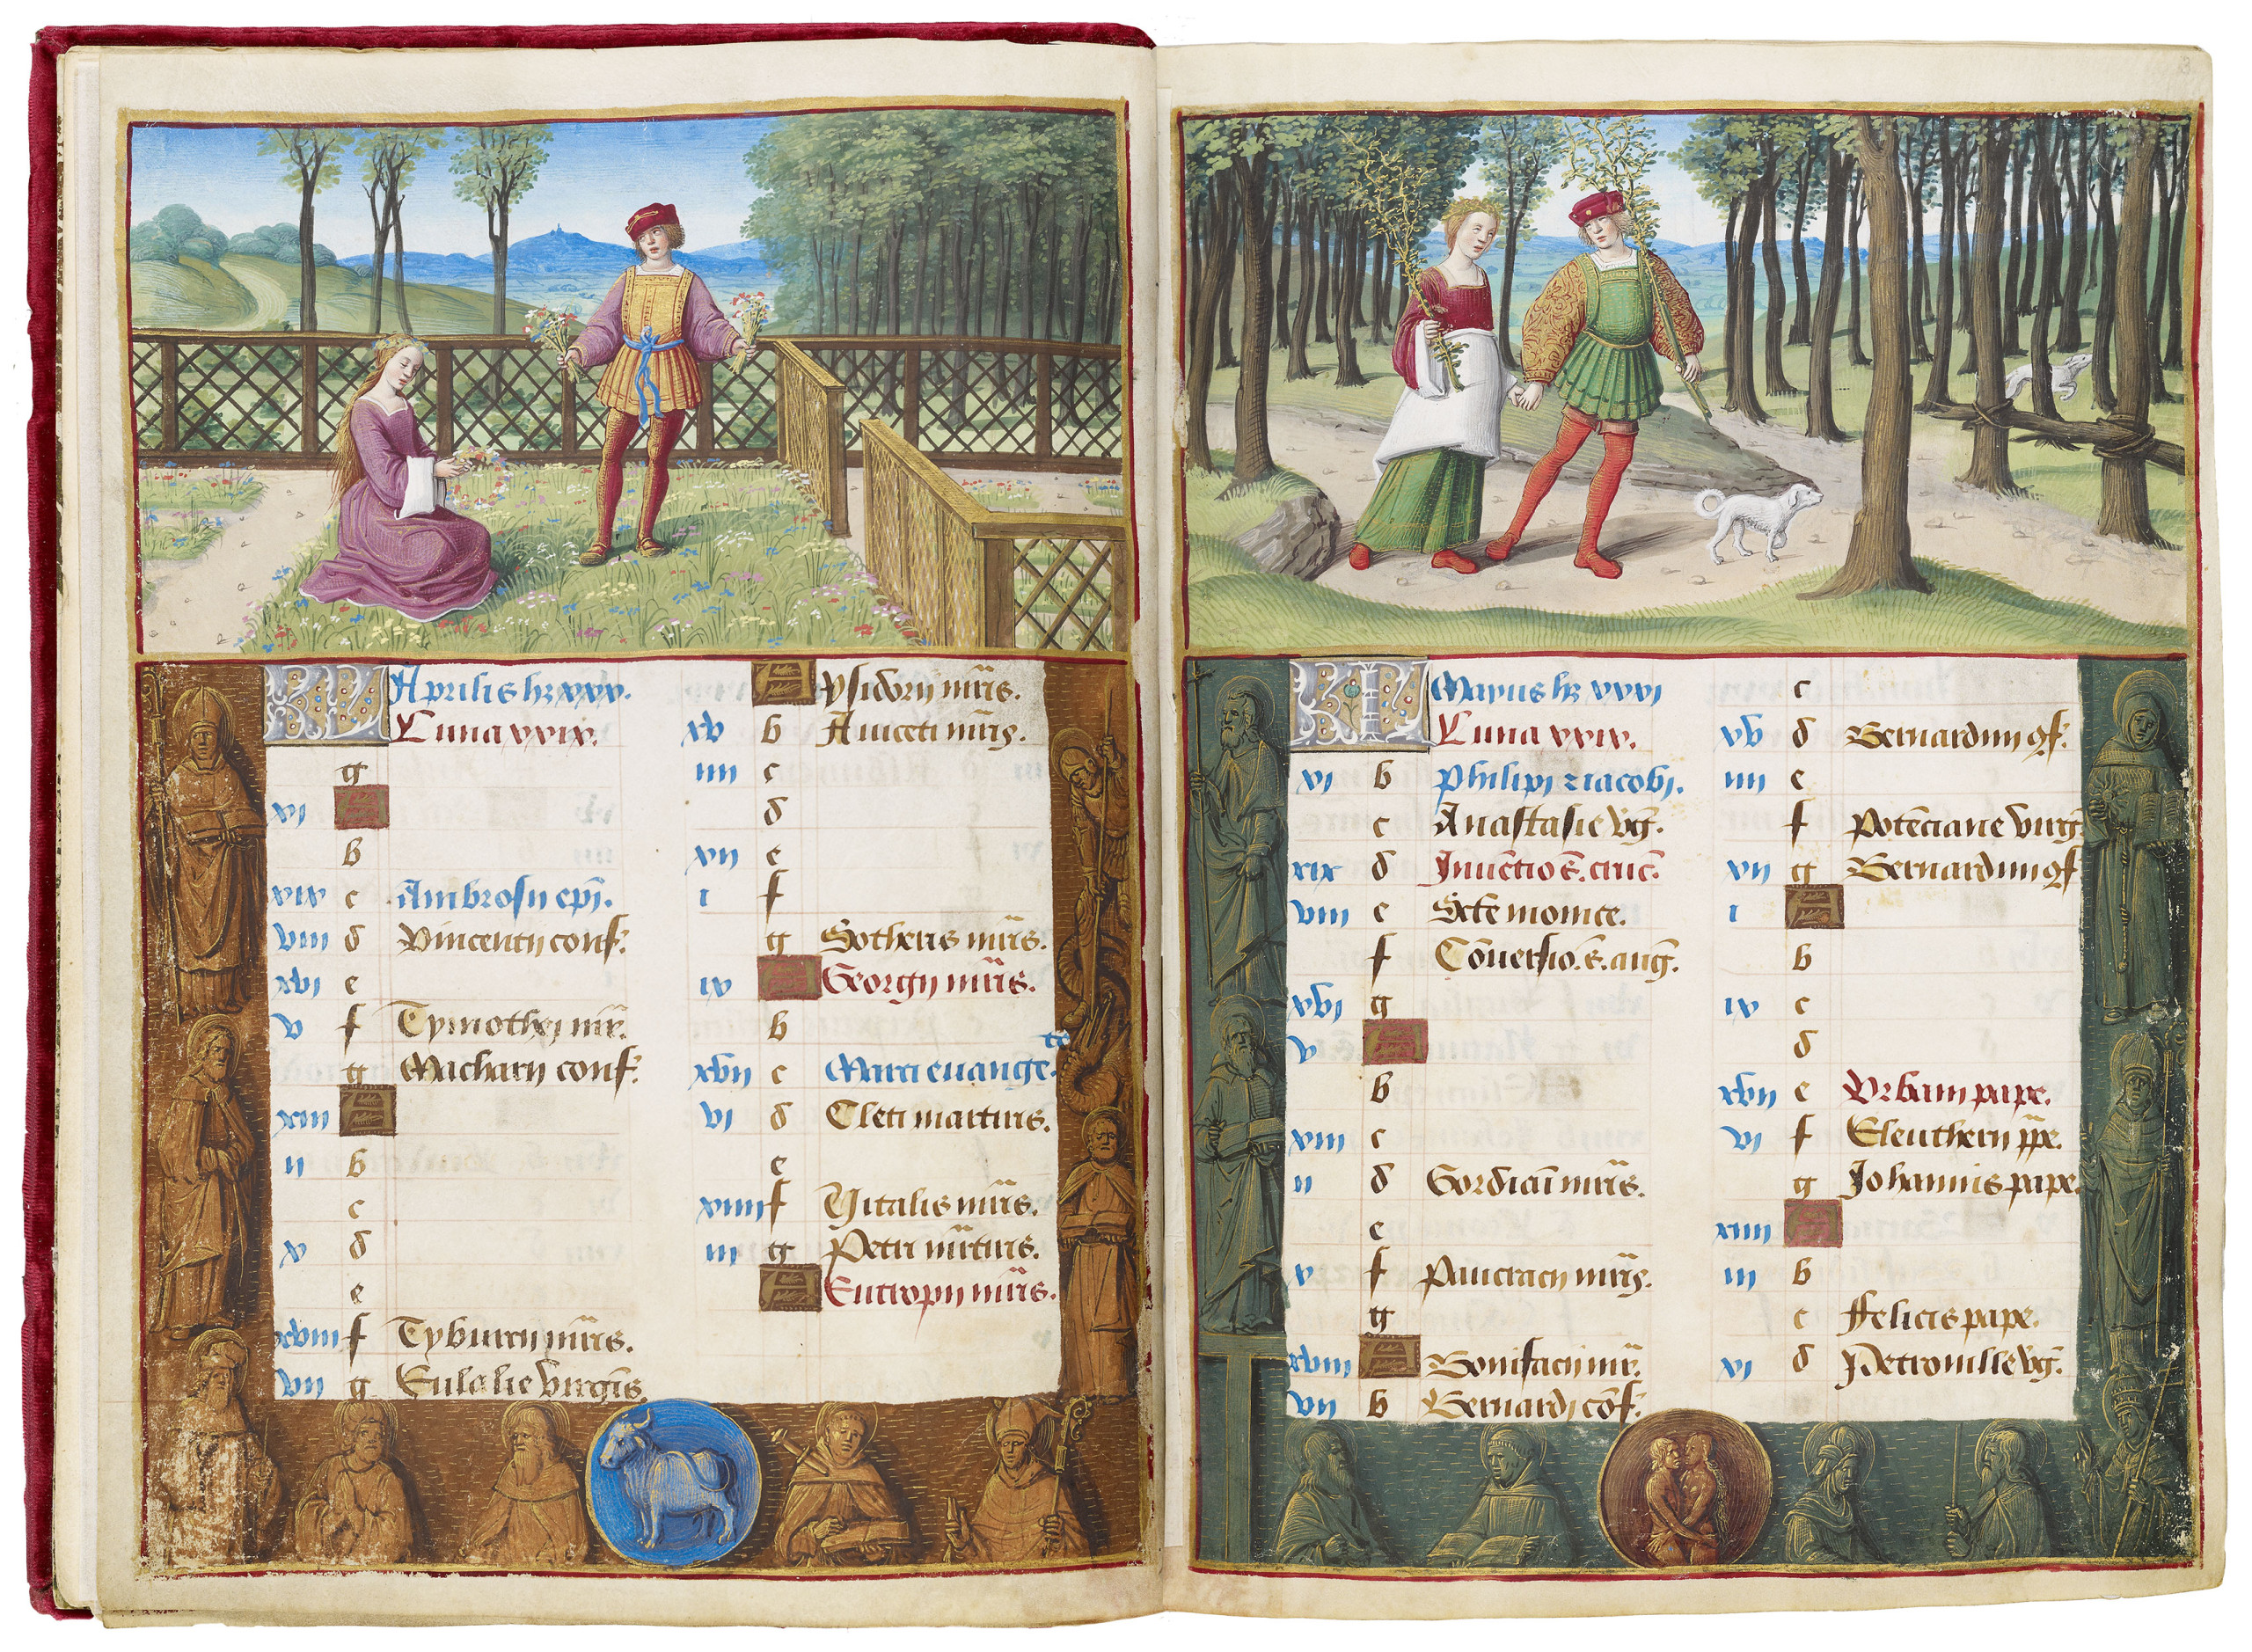 KL Aprilis hz xxx.
Luna xxix.
g
xi A
b
xix c Ambrosii epi.
viii d Vincentii conf.
xvi e
v f Tymothei mr.
g Macharii conf.
xiii A
ii b
c
x d
e
xviii f Tyburcii mris.
vii g Eulalie virgis.
A ysidorii mris.
xv b Aniceti mris.
iiii c
d
xii e
i f
g Sotheris mris.
ix A Georgii mris.
b
xvii c Marci euange. te
vi d Cleti martiris.
e
xiiii f Vitalis mris.
iii g Petri mrtiris.
A Eutropii mris.
KL Mayus hz xxxi
Luna xxix.
xi b Philipi z iacobi.
c Anastasie vg.
xix d Inuetio s. cruc.
viii e Scte monice.
f Conersio. s. aug.
xvi g
v A
b
xiii c
ii d Gordiai mris.
e
x f Pancracii mris.
g
xviii A Bonifacii mr.
vii b Bernardi cof.
c
xv d Bernardini 9f.
iiii e
f Potenciane virg.
xii g Bernardini 9f
i A
b
ix c
d
xvii e Urbani pape.
vi f Eleutherii ppe.
g Johannis pape.
xiiii A
iii b
c Ffelicis pape.
xi d Petronille vg.